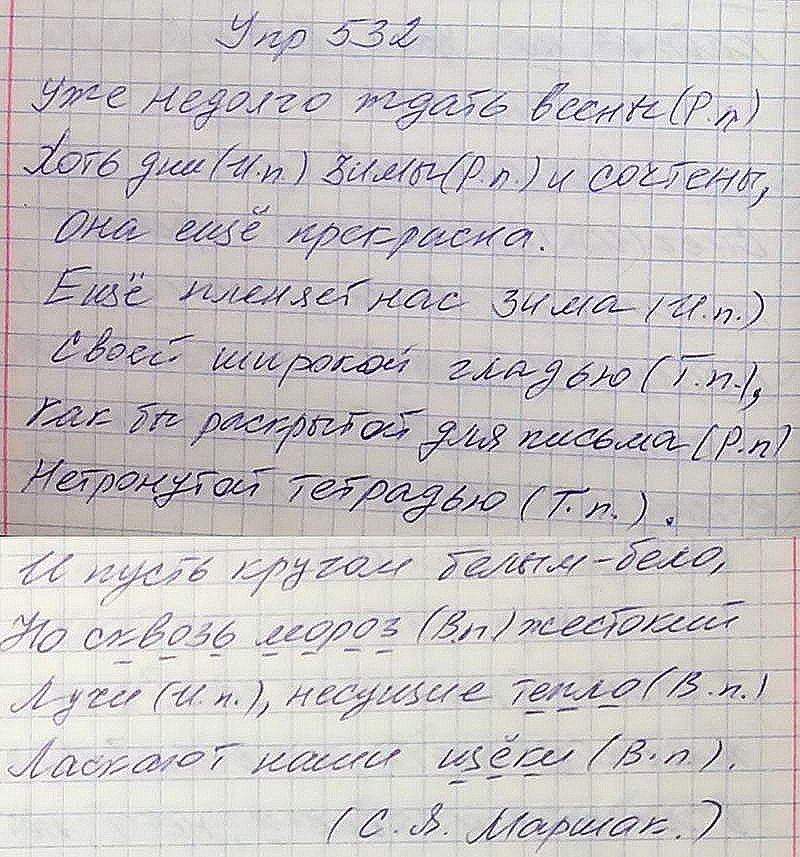 Упр 532
Уже недолго ждать весны (Р.п)
Хоть дни (И.п) зимы (Р.п.) и сочтены,
Она ещё прекрасна.
Ещё пленяет нас зима (И.п.)
Своей широкой гладью (Т.п.),
Как бы раскрытой для письма (Р.п)
Нетронутой тетрадью (Т.п.).
И пусть кругом белым-бело,
Но сквозь мороз (В.п) жестокий
Лучи (И.п.), несущие тепло (В.п.)
Ласкают наши щёки (В.п.).
(С. Я. Маршак.)